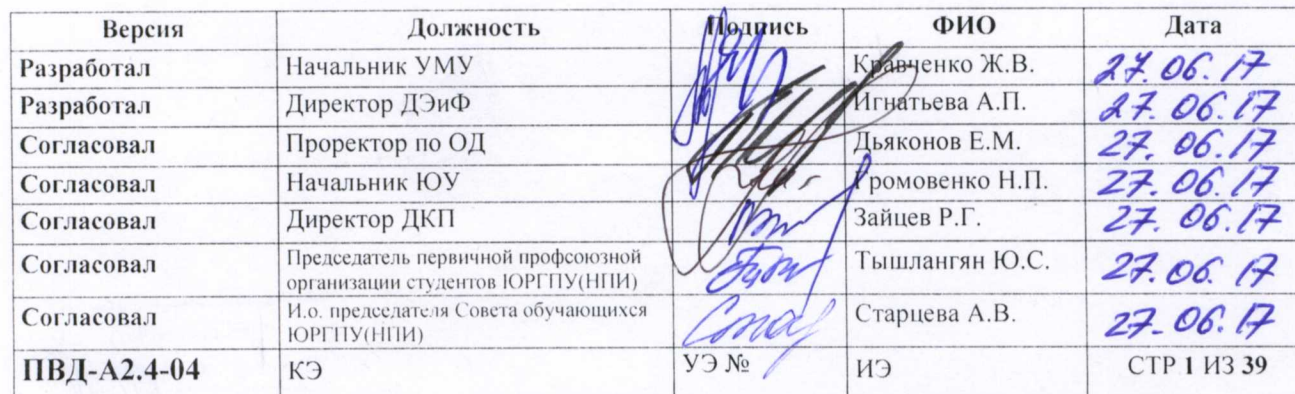 Версия Должность Подпись ФИО Дата
Разработал Начальник УМУ Кравченко Ж.В. 27.06.17
Разработал Директор ДЭиФ Игнатьева А.П. 27.06.17
Согласовал Проректор по ОД Дьяконов Е.М. 27.06.17
Согласовал Начальник ЮУ Громовенко Н.П. 27.06.17
Согласовал Директор ДКП Зайцев Р.Г. 27.06.17
Согласовал Председатель первичной профсоюзной Тышлангян Ю.С. 27.06.17
организации студентов ЮРГПУ(НПИ)
Согласовал И.о. председателя Совета обучающихся Старцева А.В. 27.06.17
ЮРГПУ(НПИ)
ПВД-А2.4-04 КЭ УЭ № ИЭ СТР.1 ИЗ 39